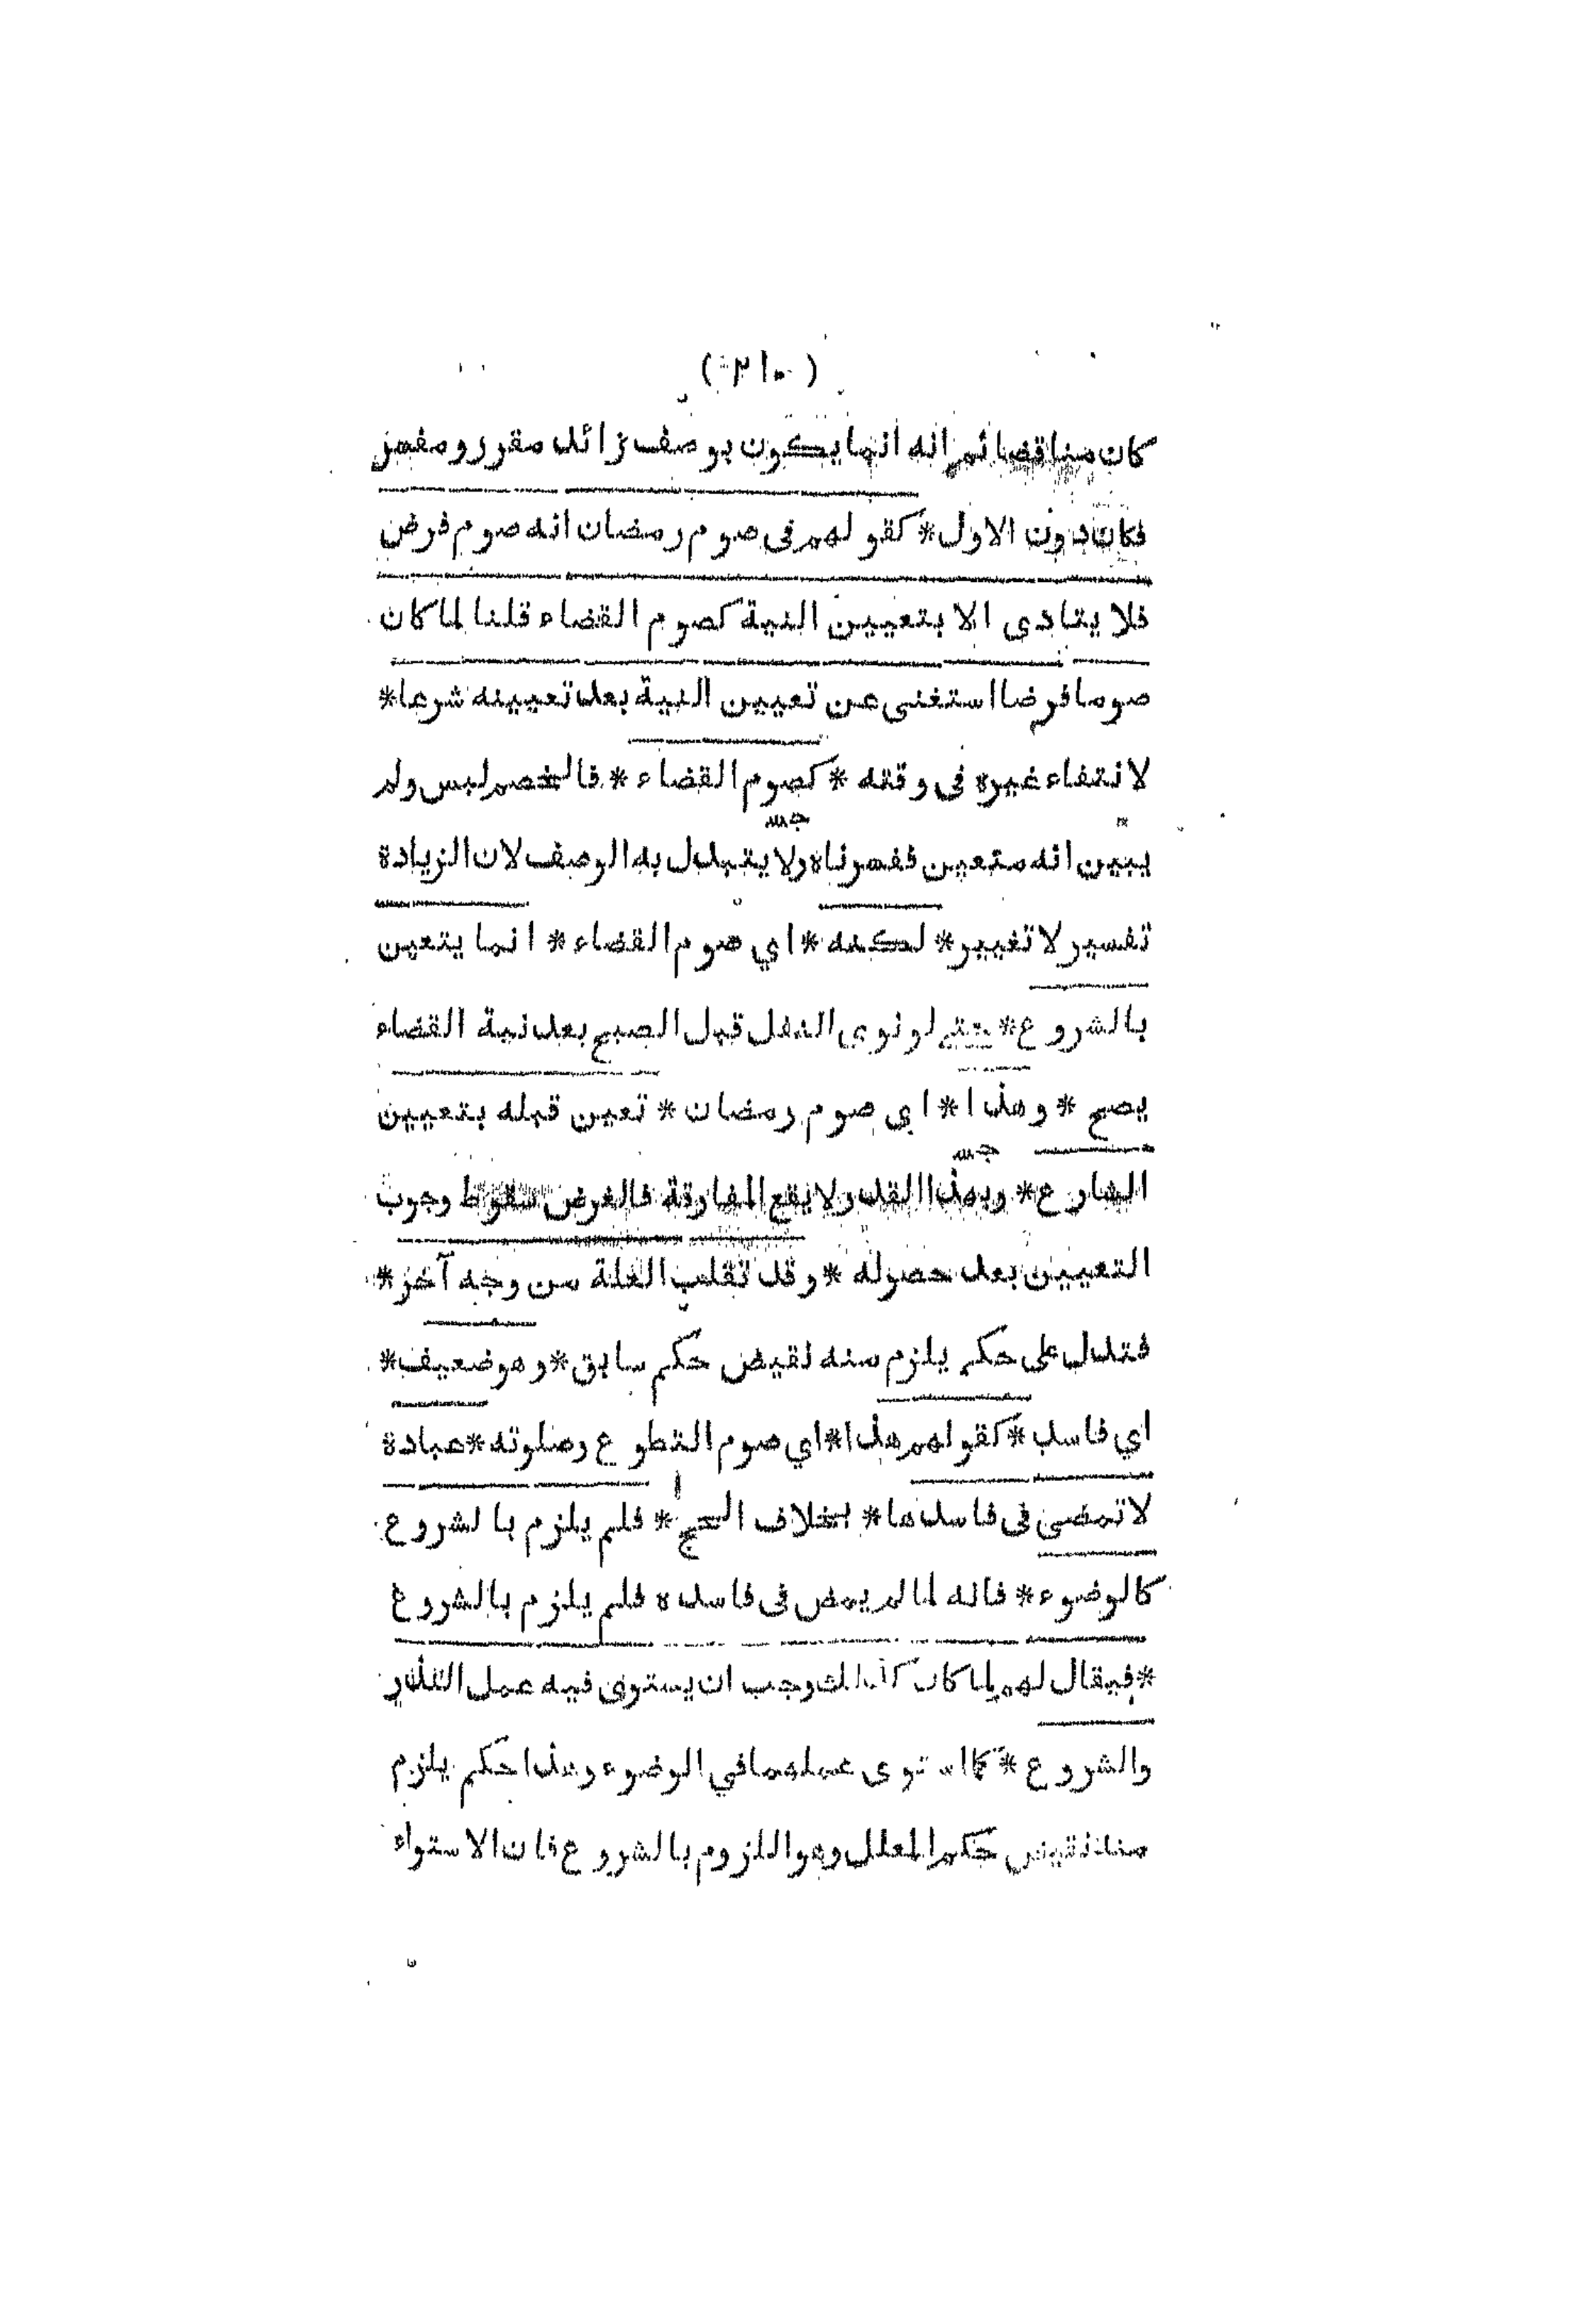 (٢١٠)
كان مناقضا ثم انه انما يكون بوصف زائد مقرر ومفسر
فكان دون الاول * كقولهم فى صوم رمضان انه صوم فرض
فلا يتادى الا بتعيين النية كصوم القضاء قلنا لما كان
صوما فرضا استغنى عن تعيين النية بعد تعيينه شرعا *
لانتفاء غيره فى وقته * كصوم القضاء * فالخصم لبس ولم
يبين انه متعين ففسرناه ولا يتبدل به الوصف لان الزيادة
تفسير لا تغيير * لكنه * اي صوم القضاء * انما يتعين
بالشروع * حتى لو نوى النفل قبل الصبح بعد نية القضاء
يصح * وهذا * اى صوم رمضان * تعين قبله بتعيين
الشارع * وبهذا القدر لا يقع المفارقة فالغرض سقوط وجوب
التعيين بعد حصوله * وقد تقلب العلة من وجه آخر *
فتدل على حكم يلزم منه نقيض حكم سابق * وهو ضعيف *
اي فاسد * كقولهم هذا * اي صوم التطوع وصلوته * عبادة
لا تمضى فى فاسدها * بخلاف الحج * فلم يلزم بالشروع
كالوضوء * فانه لما لم يمض فى فاسده فلم يلزم بالشروع
* فيقال لهم لما كان كذلك وجب ان يستوى فيه عمل النذر
والشروع * كما استوى عملهما في الوضوء وهذا حكم يلزم
منه نقيض حكم المعلل وهو اللزوم بالشروع فان الاستواء